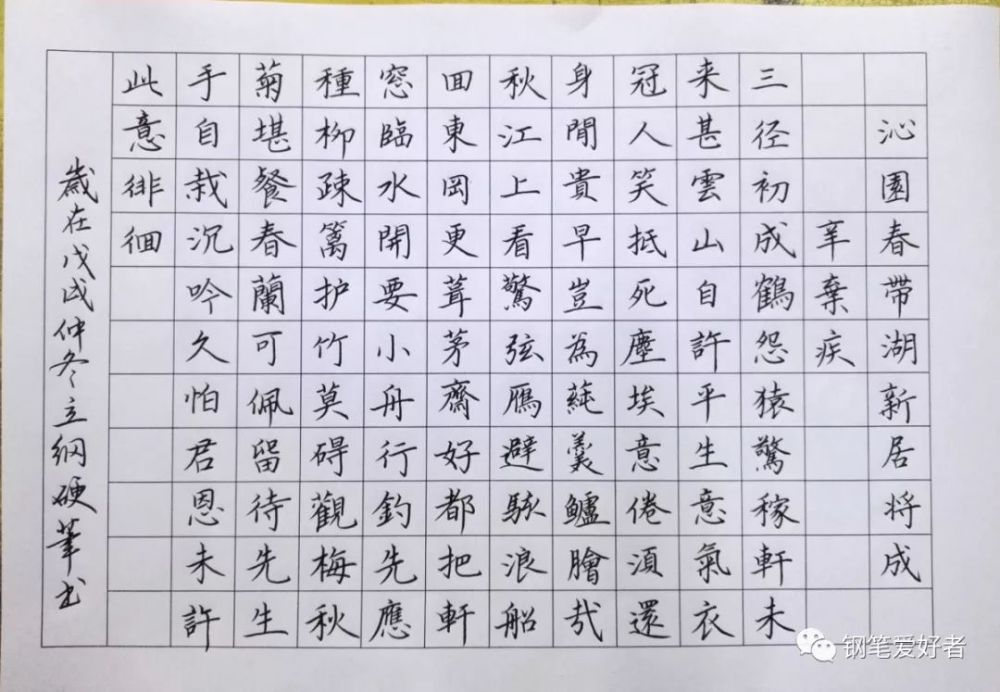 沁園春帶湖新居将成
辛棄疾
三径初成鶴怨猿驚稼軒未
来甚雲山自許平生意氣衣
冠人笑抵死塵埃意倦湏還
身閒貴早豈為蒓羹鱸膾哉
秋江上看驚弦鴈避駭浪船
回東岡更葺茅齋好都把軒
窓臨水開要小舟行釣先應
種柳疎籬护竹莫碍觀梅秋
菊堪餐春蘭可佩留待先生
手自栽沉吟久怕君恩未許
此意徘徊
歲在戊戌仲冬立綱硬筆书
钢笔爱好者